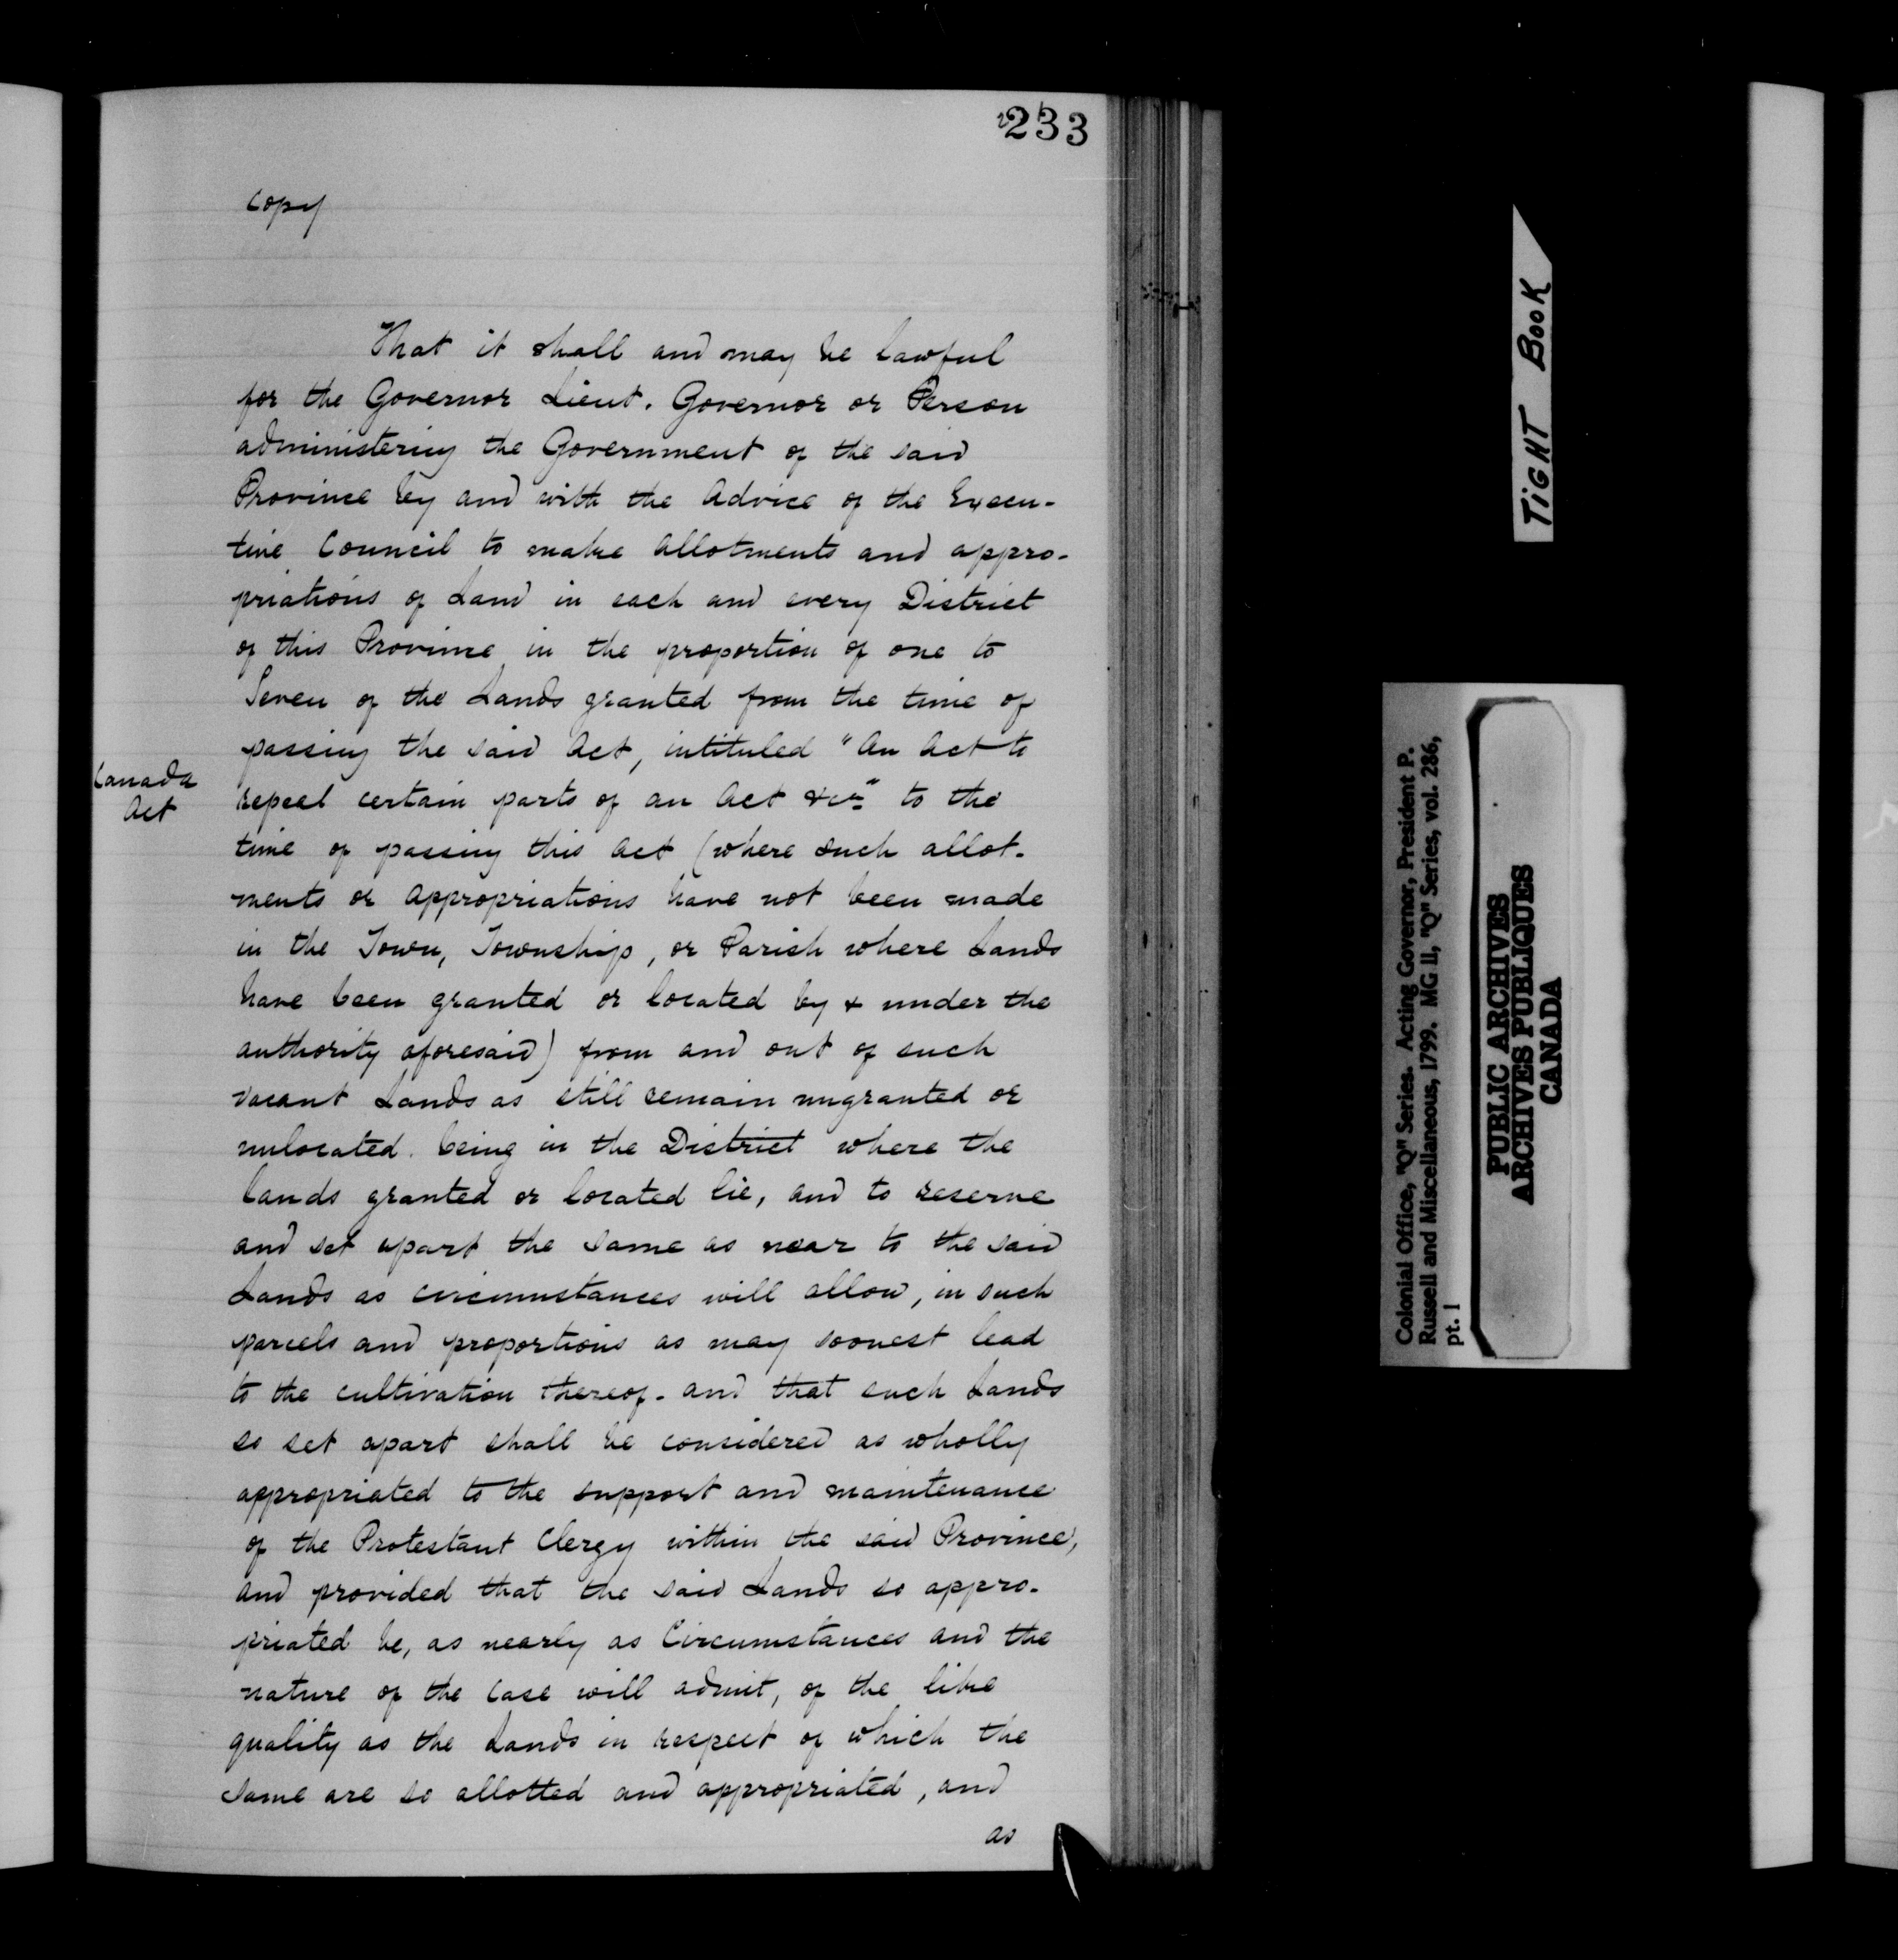 233
copy
That it shall and may be lawful
for the Governor Lieut. Governor or Person
administering the Government of the said
Province by and with the Advice of the Execu-
tive Council to make Allotments and appro-
priations of Land in each and every District
of this Province in the proportion of one to
Seven of the Lands granted from the time of
passing the said Act, intituled "An Act to
Canada
Act
repeal certain parts of an Act &c" to the
time of passing this Act (where such allot-
ments or appropriations have not been made
in the Town, Township, or Parish where Lands
have been granted or located by & under the
authority aforesaid) from and out of such
vacant Lands as still remain ungranted or
unlocated. being in the District where the
lands granted or located lie, and to reserve
and set apart the same as near to the said
Lands as circumstances will allow, in such
parcels and proportions as may soonest lead
to the cultivation thereof - and that such Lands
so set apart shall be considered as wholly
appropriated to the support and maintenance
of the Protestant Clergy within the said Province,
and provided that the said Lands so appro-
priated be, as nearly as Circumstances and the
nature of the Case will admit, of the like
quality as the Lands in respect of which the
same are so allotted and appropriated, and
as
TIGHT BOOK
Colonial Office, "Q" Series. Acting Governor, President P.
Russell and Miscellaneous, 1799. MG 11, "Q" Series, vol. 286,
pt. 1
PUBLIC ARCHIVES
ARCHIVES PUBLIQUES
CANADA